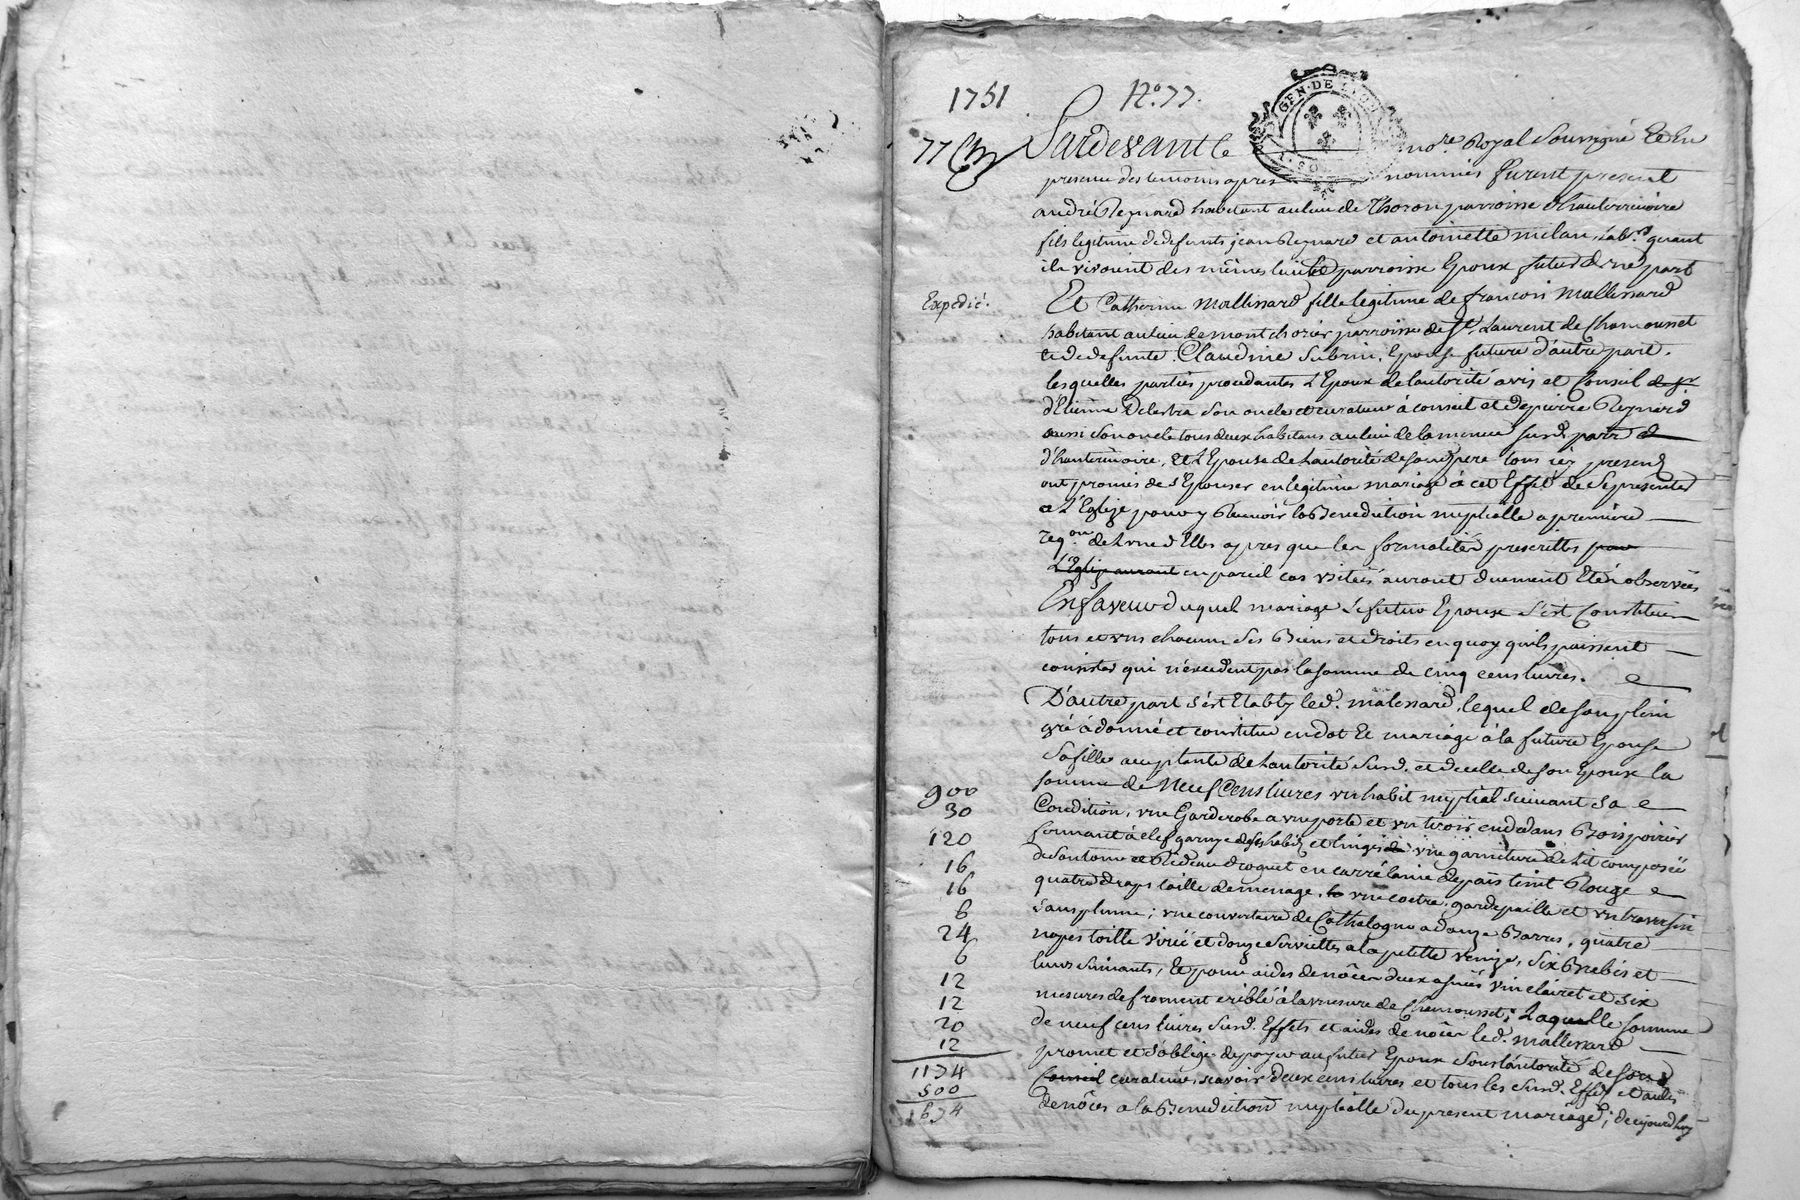 1751 N.o 77.
GEN. DE LYON
77 Pardevant le no.re Royal Soussigné Et En
presence des temoins apres nommés furent present
andré Reynard habitant au lieu de Thoron parroisse d'hauterivoire
fils legitime de defunts jean Reynard et antoinette milan, Lab.rs quant
ils vivoint des mêmes lieu et parroisse Epoux futur d'une part
Expedié. Et Catherine Mallissard fille legitime de françois Mallessard
habitant au lieu de mont chorier parroisse de S.t Laurent de Chamousset
et de defunte Claudine Subrin, Epouse future d'autre part.
lesquelles parties procedantes L'Epoux de lautorité avis et Conseil
d'Etienne Delestra son oncle et curateur à conseil et de pierre Reynard
aussi son oncle tous deux habitans au lieu de la menue susd. parr.
d'hauterivoire, Et L'Epouse de Lautorité de son pere tous icy presens
ont promis de s'Epouser en legitime mariage à cet Effet de se presenter
a L'Eglize pour y Recevoir la Benediction nuptialle a premiere
req.on de L'une d'Elles apres que les formalités prescrittes pour
L'Eglize auront en pareil cas usitées auront duement Eté observées
En faveur duquel mariage le futur Epoux s'est Constitué
tous et uns chacuns ses Biens et droits en quoy qu'ils puissent
consister qui n'excedent pas la somme de cinq cens livres.
D'autre part s'est Etably led. malessard, lequel de son plein
gré à donné et constitué en dot Et mariage à la future Epouse
Sa fille acceptante de Lautorité susd. et de celle de son Epoux la
900 somme de Neuf Cens livres un habit nuptial suivant sa
30 Condition, une Garderobe a une porte et un tiroir en dedans Bois poirier
120 fermant à clef garnye de ses habits et linges une garniture de Lit composée
16 de fantome et Rideau droguet en carré laine de païs teint Rouge
16 quatre draps toille de menage, une coetre, gardepaille et un traversin
6 sans plume; une couverture de Cathalogne a douze Barres, quatre
24 napes toille Virée et douze serviettes a la petitte Venize, six Brebis et
6 leurs suivants, Et pour aides de nôces deux asnées vin clairet et six
12 mesures de froment criblé à la mesure de Chamousset; Laquelle somme
12 de neuf cens livres susd. Effets et aides de nôces led. mallessard
20 promet et s'oblige de payer au futur Epoux sous Lautorité de sond.
12 Conseil curateur, scavoir deux cens livres et tous les susd. Effets et aides
1174 de nôces a la Benediction nuptialle du present mariage; de ce jourd'huy
500
1674